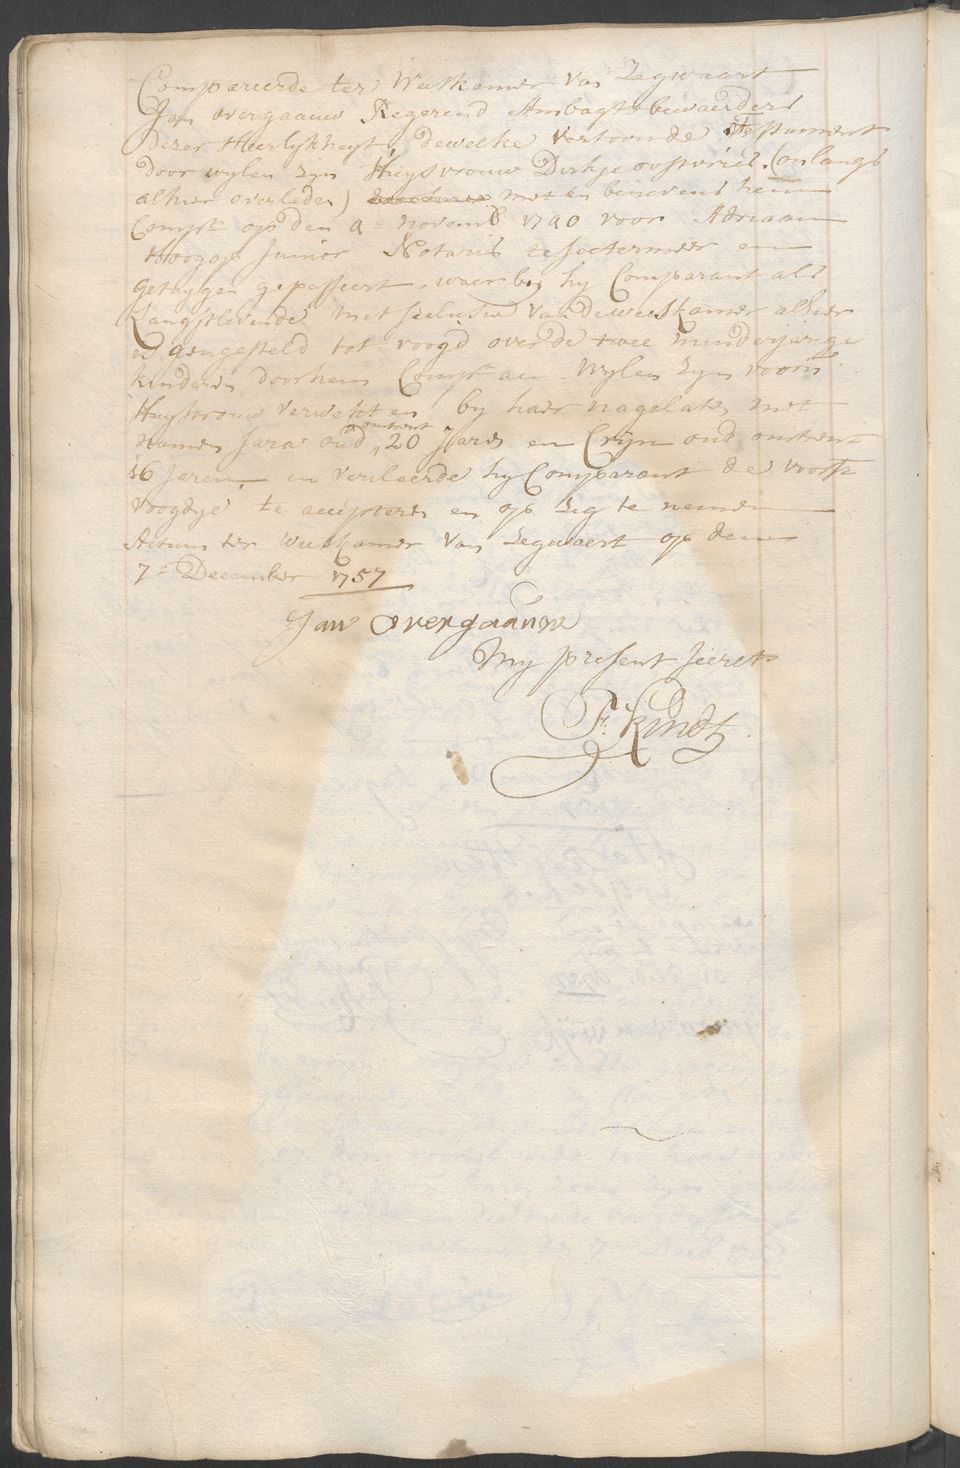 Compareerde ter Weeskamer van Zegwaart
Jan overgaauw Regerend Ambagts bewaerder
dezer Heerlykheyt, dewelke vertoonde Testament
door wylen zyn Huysvrouw Dirkje oostvries, (onlangs
alhier overleden) met en benevens hem
Compt. op den 9e novemb 1740 voor Adriaan
Hoogop Junior Notaris te soetermeer en
getuygen gepasseert, waer by hy Comparant als
Langstlevende met seclusie van de weeskamer alhier
is aengesteld tot voogd over de twee minderjarige
kinderen door hem Compt. aen Wylen zyn voorn.
Huysvrouw verwekt en by haer nagelaten, met
namen Sara oud omtrent 20 Jaren en Crijn oud omtrent
16 Jaren, en verclaerde hy Comparant de voorsz.
voogdye te accepteren en op zig te nemen
Actum ter Weeskamer van Zegwaert op den
7e December 1757
Jan overgaauw
My present secrets.
F. Kindt